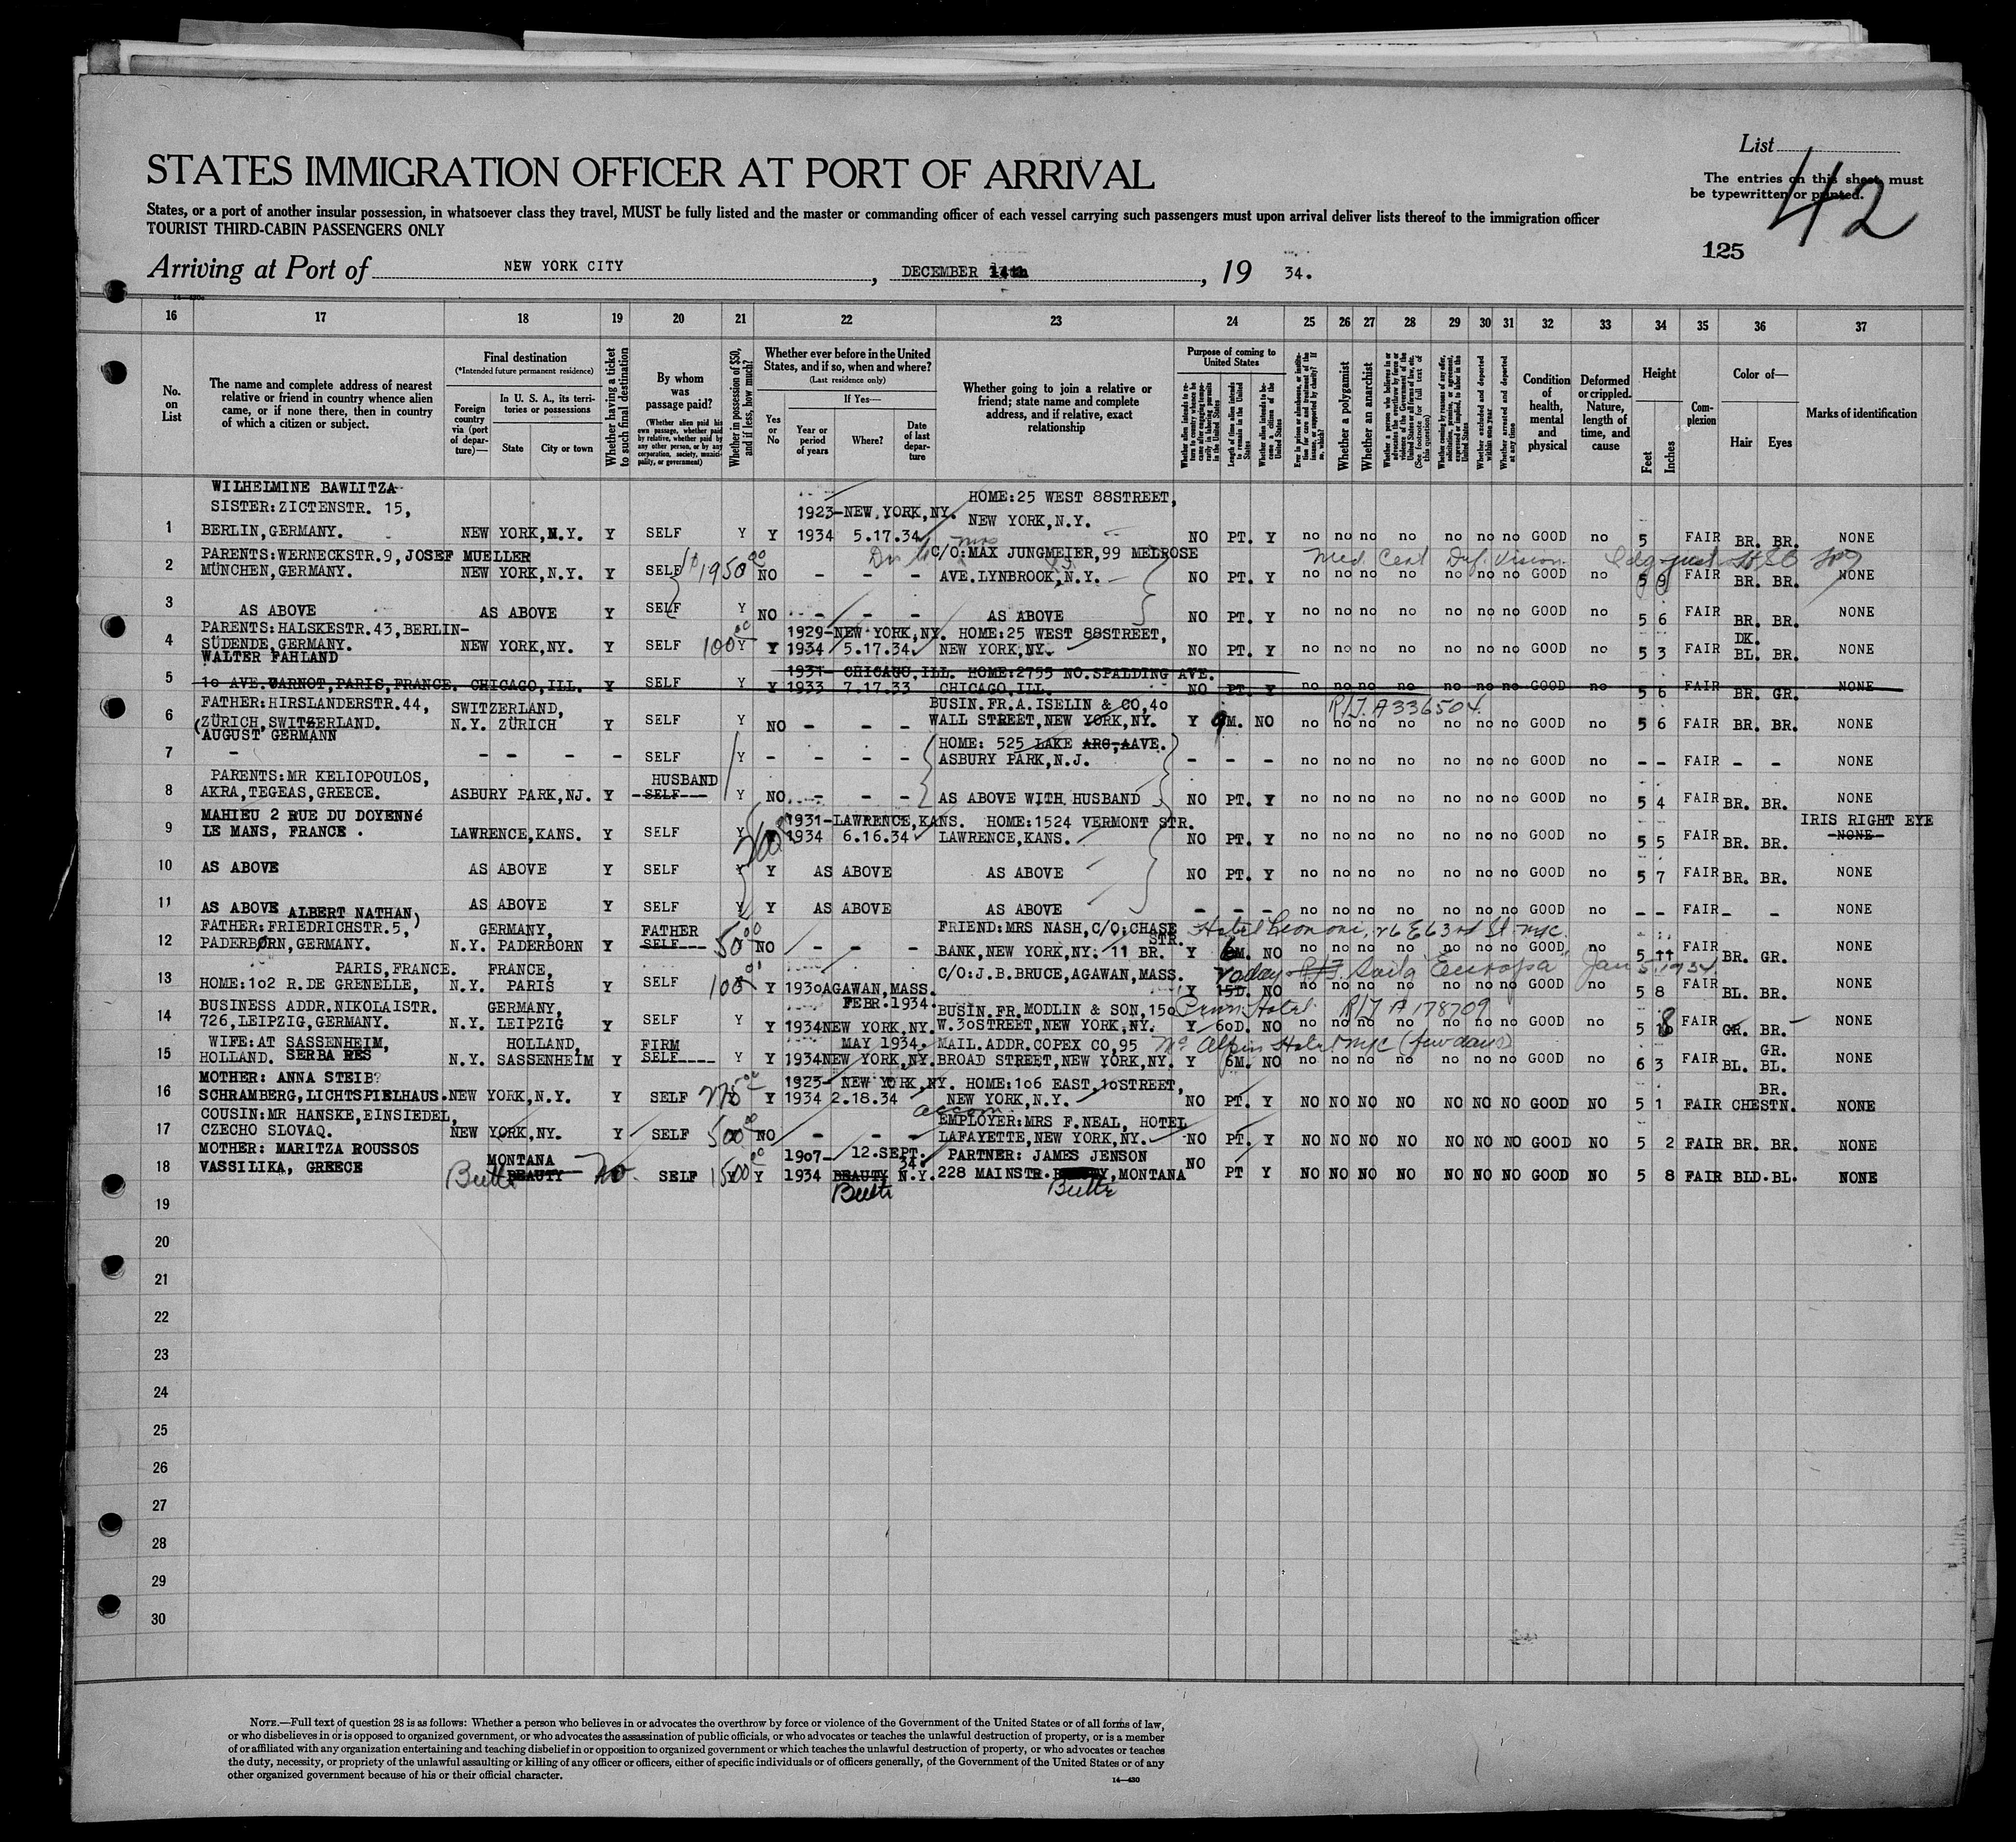 List
The entries on this sheet must
be typewritten or printed.
42
STATES IMMIGRATION OFFICER AT PORT OF ARRIVAL
States, or a port of another insular possession, in whatsoever class they travel, MUST be fully listed and the master or commanding officer of each vessel carrying such passengers must upon arrival deliver lists thereof to the immigration officer
TOURIST THIRD-CABIN PASSENGERS ONLY
125
Arriving at Port of NEW YORK CITY, DECEMBER 14th, 1934.
16 17 18 19 20 21 22 23 24 25 26 27 28 29 30 31 32 33 34 35 36 37
No. on List
The name and complete address of nearest relative or friend in country whence alien came, or if none there, then in country of which a citizen or subject.
Final destination
(*Intended future permanent residence)
Foreign country via (port of departure)—
In U. S. A., its territories or possessions
State City or town
Whether having a ticket to such final destination
By whom was passage paid?
(Whether alien paid his own passage, whether paid by relative, whether paid by any other person, or by any corporation, society, municipality, or government)
Whether in possession of $50, and if less, how much?
Whether ever before in the United States, and if so, when and where?
(Last residence only)
Yes or No
If Yes—
Year or period of years
Where?
Date of last departure
Whether going to join a relative or friend; state name and complete address, and if relative, exact relationship
Purpose of coming to United States
Whether alien intends to return to country whence he came after engaging temporarily in laboring pursuits in the United States
Length of time alien intends to remain in the United States
Whether alien intends to become a citizen of the United States
Ever in prison or almshouse, or institution for care and treatment of the insane, or supported by charity? If so, which?
Whether a polygamist
Whether an anarchist
Whether a person who believes in or advocates the overthrow by force or violence of the Government of the United States or all forms of law, etc. (See footnote for full text of this question)
Whether coming by reason of any offer, solicitation, promise, or agreement, expressed or implied, to labor in the United States
Whether excluded and deported within one year
Whether arrested and deported at any time
Condition of health, mental and physical
Deformed or crippled. Nature, length of time, and cause
Height
Feet Inches
Complexion
Color of—
Hair Eyes
Marks of identification
WILHELMINE BAWLITZA
SISTER:ZICTENSTR. 15, HOME:25 WEST 88STREET,
1923-NEW.YORK,NY. NEW YORK,N.Y.
1 BERLIN,GERMANY. NEW YORK,N.Y. Y SELF Y Y 1934 5.17.34 NO PT. Y no no no no no no no GOOD no 5 FAIR BR. BR. NONE
PARENTS:WERNECKSTR.9,JOSEF MUELLER C/O:MAX JUNGMEIER,99 MELROSE Med Cert Def. Vision
2 MÜNCHEN,GERMANY. NEW YORK,N.Y. Y SELF 1950 00 NO - - - AVE.LYNBROOK,N.Y. NO PT. Y no no no no no no no GOOD no 5 9 FAIR BR. BR. NONE
3 AS ABOVE AS ABOVE Y SELF Y NO - - - AS ABOVE NO PT. Y no no no no no no no GOOD no 5 6 FAIR BR. BR. NONE
PARENTS:HALSKESTR.43,BERLIN- 1929-NEW YORK,NY. HOME:25 WEST 88STREET, DK.
4 SÜDENDE,GERMANY. NEW YORK,NY. Y SELF 100 00 Y Y 1934 5.17.34 NEW YORK,NY. NO PT. Y no no no no no no no GOOD no 5 3 FAIR BL. BR. NONE
WALTER FAHLAND
1931- CHICAGO,ILL. HOME:2755 NO.SPALDING AVE.
5 10 AVE.CARNOT,PARIS,FRANCE. CHICAGO,ILL. Y SELF Y Y 1933 7.17.33 CHICAGO,ILL. NO PT. Y no no no no no no no GOOD no 5 6 FAIR BR. GR. NONE
FATHER:HIRSLANDERSTR.44, SWITZERLAND, BUSIN.FR.A.ISELIN & CO,40 R/T A336504
6 ZÜRICH,SWITZERLAND. N.Y. ZÜRICH Y SELF NO - - WALL STREET,NEW YORK,NY. Y 9M. NO no no no no no no no GOOD no 5 6 FAIR BR. BR. NONE
(AUGUST GERMANN
HOME: 525 LAKE ARC,AAVE.
7 - - - - - SELF Y - - - - ASBURY PARK,N.J. - - - no no no no no no no GOOD no - - FAIR - - NONE
PARENTS:MR KELIOPOULOS, HUSBAND
8 AKRA,TEGEAS,GREECE. ASBURY PARK,NJ. Y SELF Y NO - - - AS ABOVE WITH HUSBAND NO PT. Y no no no no no no no GOOD no 5 4 FAIR BR. BR. NONE
MAHIEU 2 RUE DU DOYENNé 1931-LAWRENCE,KANS. HOME:1524 VERMONT STR. IRIS RIGHT EYE
9 LE MANS, FRANCE . LAWRENCE,KANS. Y SELF Y Y 1934 6.16.34 LAWRENCE,KANS. NO PT. Y no no no no no no no GOOD no 5 5 FAIR BR. BR. NONE
10 AS ABOVE AS ABOVE Y SELF Y Y AS ABOVE AS ABOVE NO PT. Y no no no no no no no GOOD no 5 7 FAIR BR. BR. NONE
11 AS ABOVE AS ABOVE Y SELF Y Y AS ABOVE AS ABOVE - - - no no no no no no no GOOD no - - FAIR - - NONE
ALBERT NATHAN)
FATHER:FRIEDRICHSTR.5, GERMANY, FATHER FRIEND:MRS NASH,C/O:CHASE 26 E 63rd St nyc.
STR.
12 PADERBORN,GERMANY. N.Y. PADERBORN Y SELF 50 00 NO - - - BANK,NEW YORK,NY. 11 BR. Y 6M. NO no no no no no no no GOOD no 5 11 FAIR BR. GR. NONE
PARIS,FRANCE. FRANCE, C/O:J.B.BRUCE,AGAWAN,MASS. Sails "Europa" Jan 5, 1934
13 HOME:102 R.DE GRENELLE, N.Y. PARIS Y SELF 100 Y 1930 AGAWAN,MASS. Y 15D. NO no no no no no no no GOOD no 5 8 FAIR BL. BR. NONE
BUSINESS ADDR.NIKOLAISTR. GERMANY, FEBR.1934. BUSIN.FR.MODLIN & SON,150 Penn Hotel R/T A178709
14 726,LEIPZIG,GERMANY. N.Y. LEIPZIG Y SELF Y Y 1934 NEW YORK,NY. W.30STREET,NEW YORK,NY. Y 60D. NO no no no no no no no GOOD no 5 8 FAIR GR. BR. NONE
WIFE:AT SASSENHEIM, HOLLAND, FIRM MAY 1934. MAIL.ADDR.COPEX CO,95 Mc Alpin Hotel nyc (few days)
GR.
15 HOLLAND. SERBA RES N.Y. SASSENHEIM Y SELF Y Y 1934 NEW YORK,NY. BROAD STREET,NEW YORK,NY. Y 6M. NO no no no no no no no GOOD no 6 3 FAIR BL. BL. NONE
MOTHER: ANNA STEIB? 1923- NEW YORK,NY. HOME:106 EAST,10STREET, BR.
16 SCHRAMBERG,LICHTSPIELHAUS. NEW YORK,N.Y. Y SELF Y 1934 2.18.34 NEW YORK,N.Y. NO PT. Y NO NO NO NO NO NO NO GOOD NO 5 1 FAIR CHESTN. NONE
COUSIN:MR HANSKE,EINSIEDEL, EMPLOYER:MRS F.NEAL, HOTEL
17 CZECHO SLOVAQ. NEW YORK,NY. Y SELF 500 00 NO - - - LAFAYETTE,NEW YORK,NY. NO PT. Y NO NO NO NO NO NO NO GOOD NO 5 2 FAIR BR. BR. NONE
MOTHER: MARITZA ROUSSOS MONTANA 1907- 12.SEPT. 34. PARTNER: JAMES JENSON
18 VASSILIKA, GREECE Butte BEAUTY no. SELF 1500 00 Y Y 1934 BEAUTY N.Y. 228 MAINSTR. MONTANA NO PT Y NO NO NO NO NO NO NO GOOD NO 5 8 FAIR BLD. BL. NONE
Butte Butte
19
20
21
22
23
24
25
26
27
28
29
30
NOTE.—Full text of question 28 is as follows: Whether a person who believes in or advocates the overthrow by force or violence of the Government of the United States or of all forms of law,
or who disbelieves in or is opposed to organized government, or who advocates the assassination of public officials, or who advocates or teaches the unlawful destruction of property, or is a member
of or affiliated with any organization entertaining and teaching disbelief in or opposition to organized government or which teaches the unlawful destruction of property, or who advocates or teaches
the duty, necessity, or propriety of the unlawful assaulting or killing of any officer or officers, either of specific individuals or of officers generally, of the Government of the United States or of any
other organized government because of his or their official character.
14—430